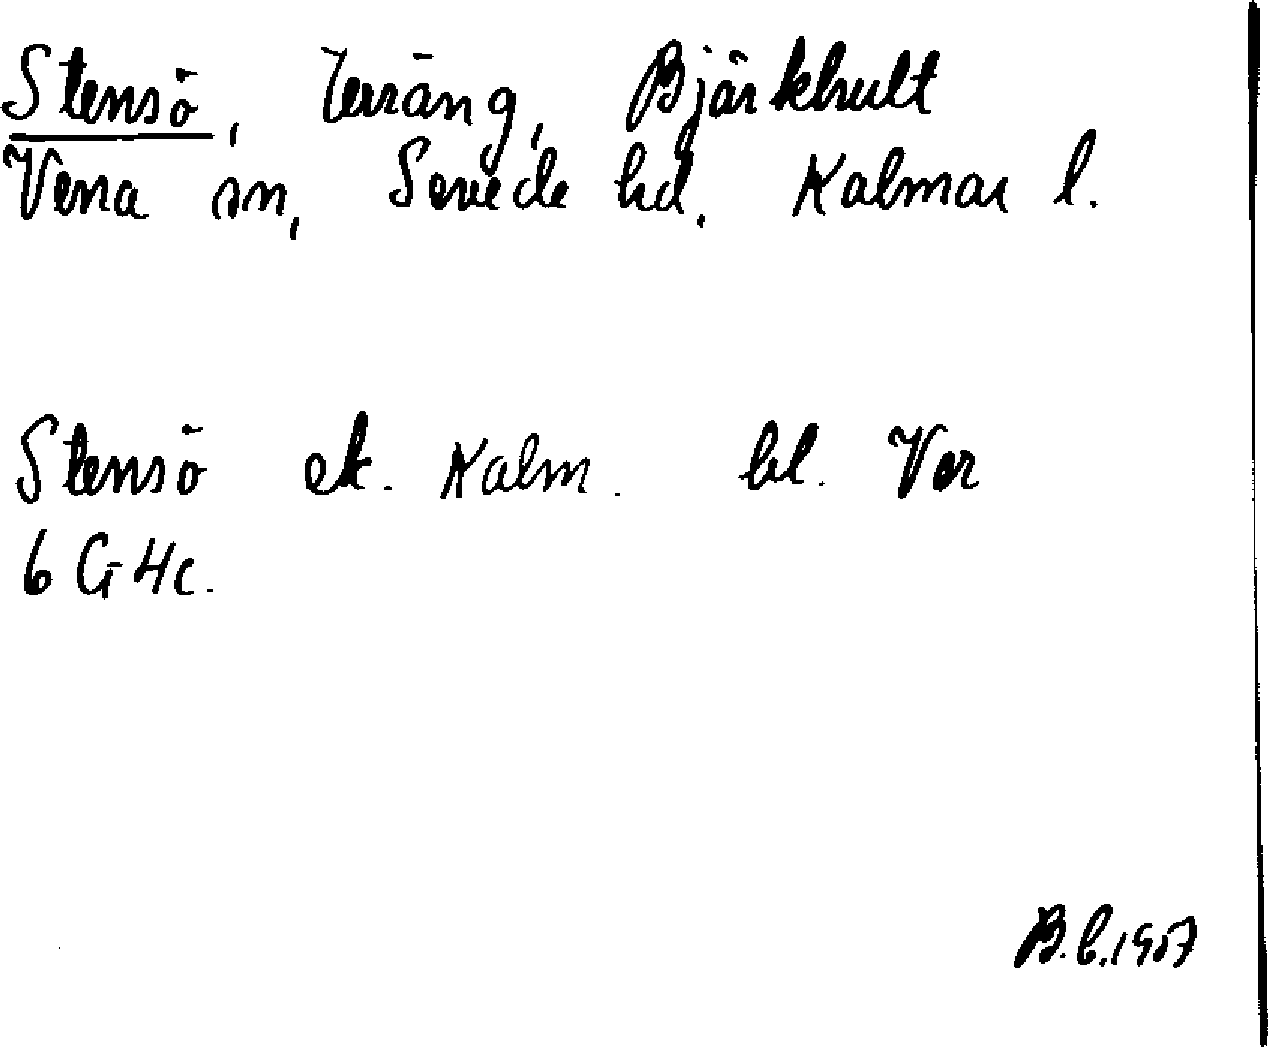 Stensö, terräng, Bjärkhult
Vena sn, Sevede hd. Kalmar l.
Stensö ek. Kalm. bl. Ver
6 G 4c.
B. L. 1957